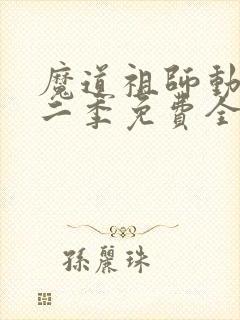 魔道祖師動
二季免費全
孫麗珠